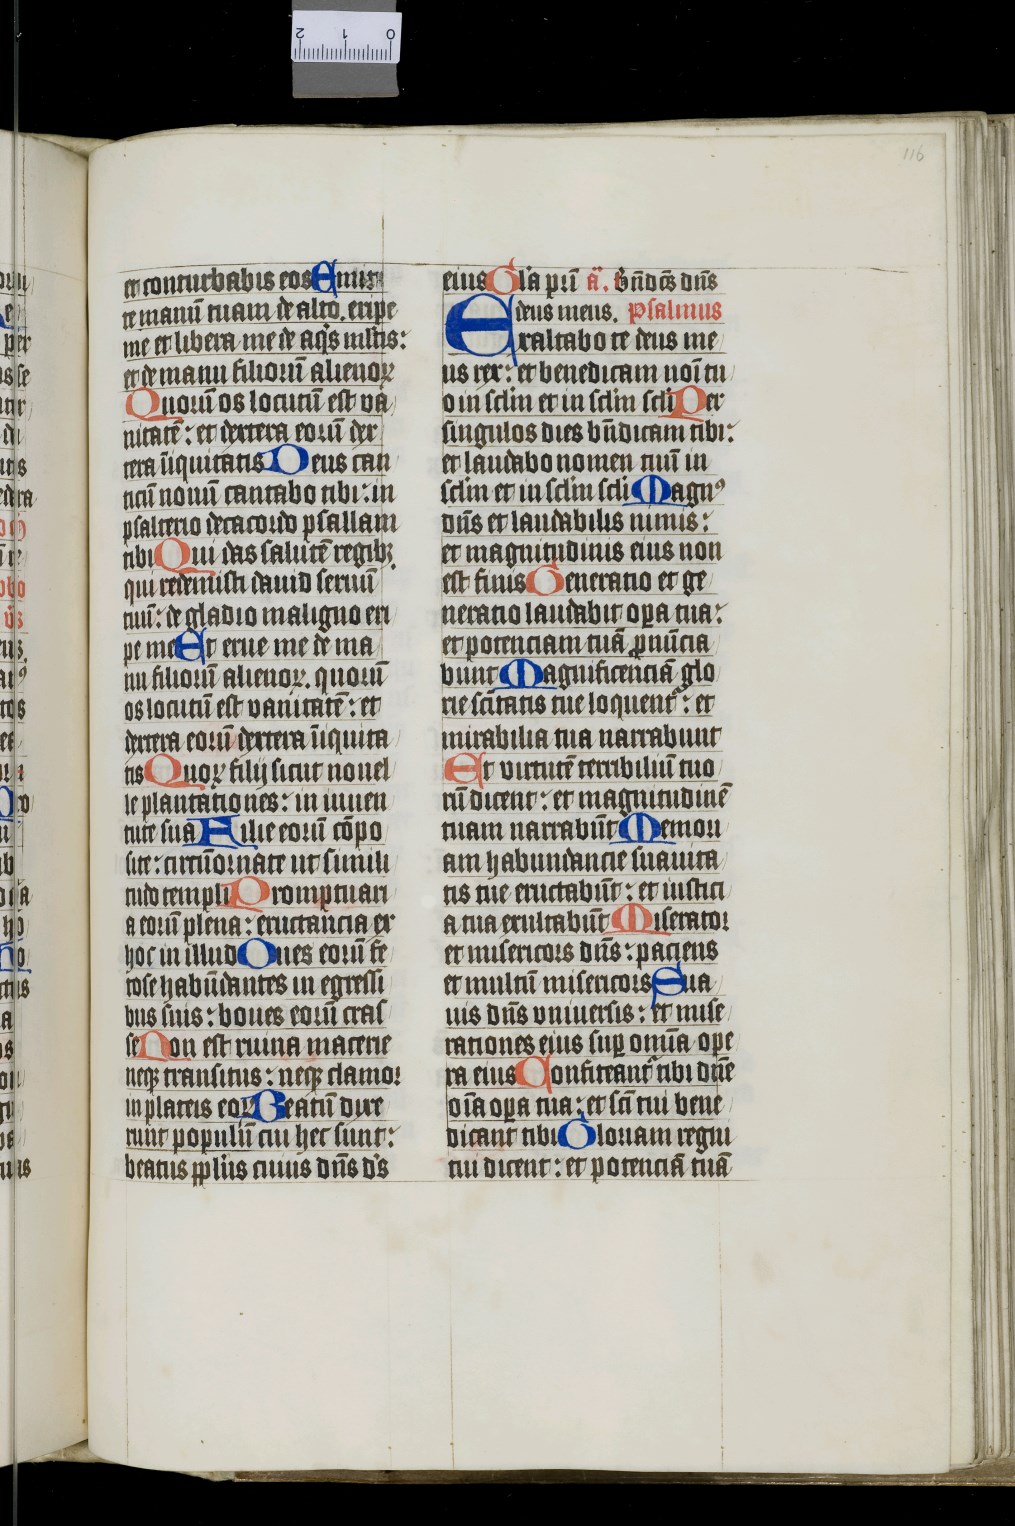 116
et conturbabis eos Emit
te manū tuam de alto. eripe
me et libera me de aq̄s ml̄tis:
et de manu filiorū alienoꝝ
Quorū os locutū est va
nitatē: et dextera eorū dex
tera īiquitatis Deus can
ticū novū cantabo tibi: in
psalterio decacordo psallam
tibi Qui das salutē regibꝫ
qui redemisti david servū
tuū: de gladio maligno eri
pe me Et erue me de ma
nu filiorū alienoꝝ. quorū
os locutū est vanitatē: et
dextera eorū dextera īiquita
tis Quoꝝ filij sicut novel
le plantationes: in iuven
tute sua Filie eorū cōpo
site: circūornate ut simili
tudo templi Promptuari
a eorū plena: eructancia ex
hoc in illud Oves eorū fe
tose habūdantes in egressi
bus suis: boves eorū cras
se Non est ruina macerie
neqꝫ transitus: neqꝫ clamor
in plateis eoꝝ Beatū dixe
runt populū cui hec sunt:
beatus ppl̄us cuius dn̄s d's
eius Gl'a pr̄i ā. Bn̄dcs dn̄s
deus meus. Psalmus
Exaltabo te deus me
us rex: et benedicam noī tu
o in sclm et in sclm scli Per
singulos dies bn̄dicam tibi:
et laudabo nomen tuū in
sclm et in sclm scli Magnꝰ
dn̄s et laudabilis nimis:
et magnitudinis eius non
est finis Generatio et ge
neratio laudabit oꝑa tua:
et potenciam tuā ꝓnūcia
bunt Magnificenciā glo
rie scītatis tue loquent᷑: et
mirabilia tua narrabunt
Et virtutē terribiliū tuo
rū dicent: et magnitudinē
tuam narrabūt Memori
am habundancie suavita
tis tue eructabūt: et iustici
a tua exultabūt Miserator
et misericors dn̄s: paciens
et multū misericors Sua
vis dn̄s universis: et mise
rationes eius suꝑ omīa ope
ra eius Confiteant᷑ tibi dn̄e
oīa oꝑa tua: et scī tui bene
dicant tibi Gloriam regni
tui dicent: et potenciā tuā